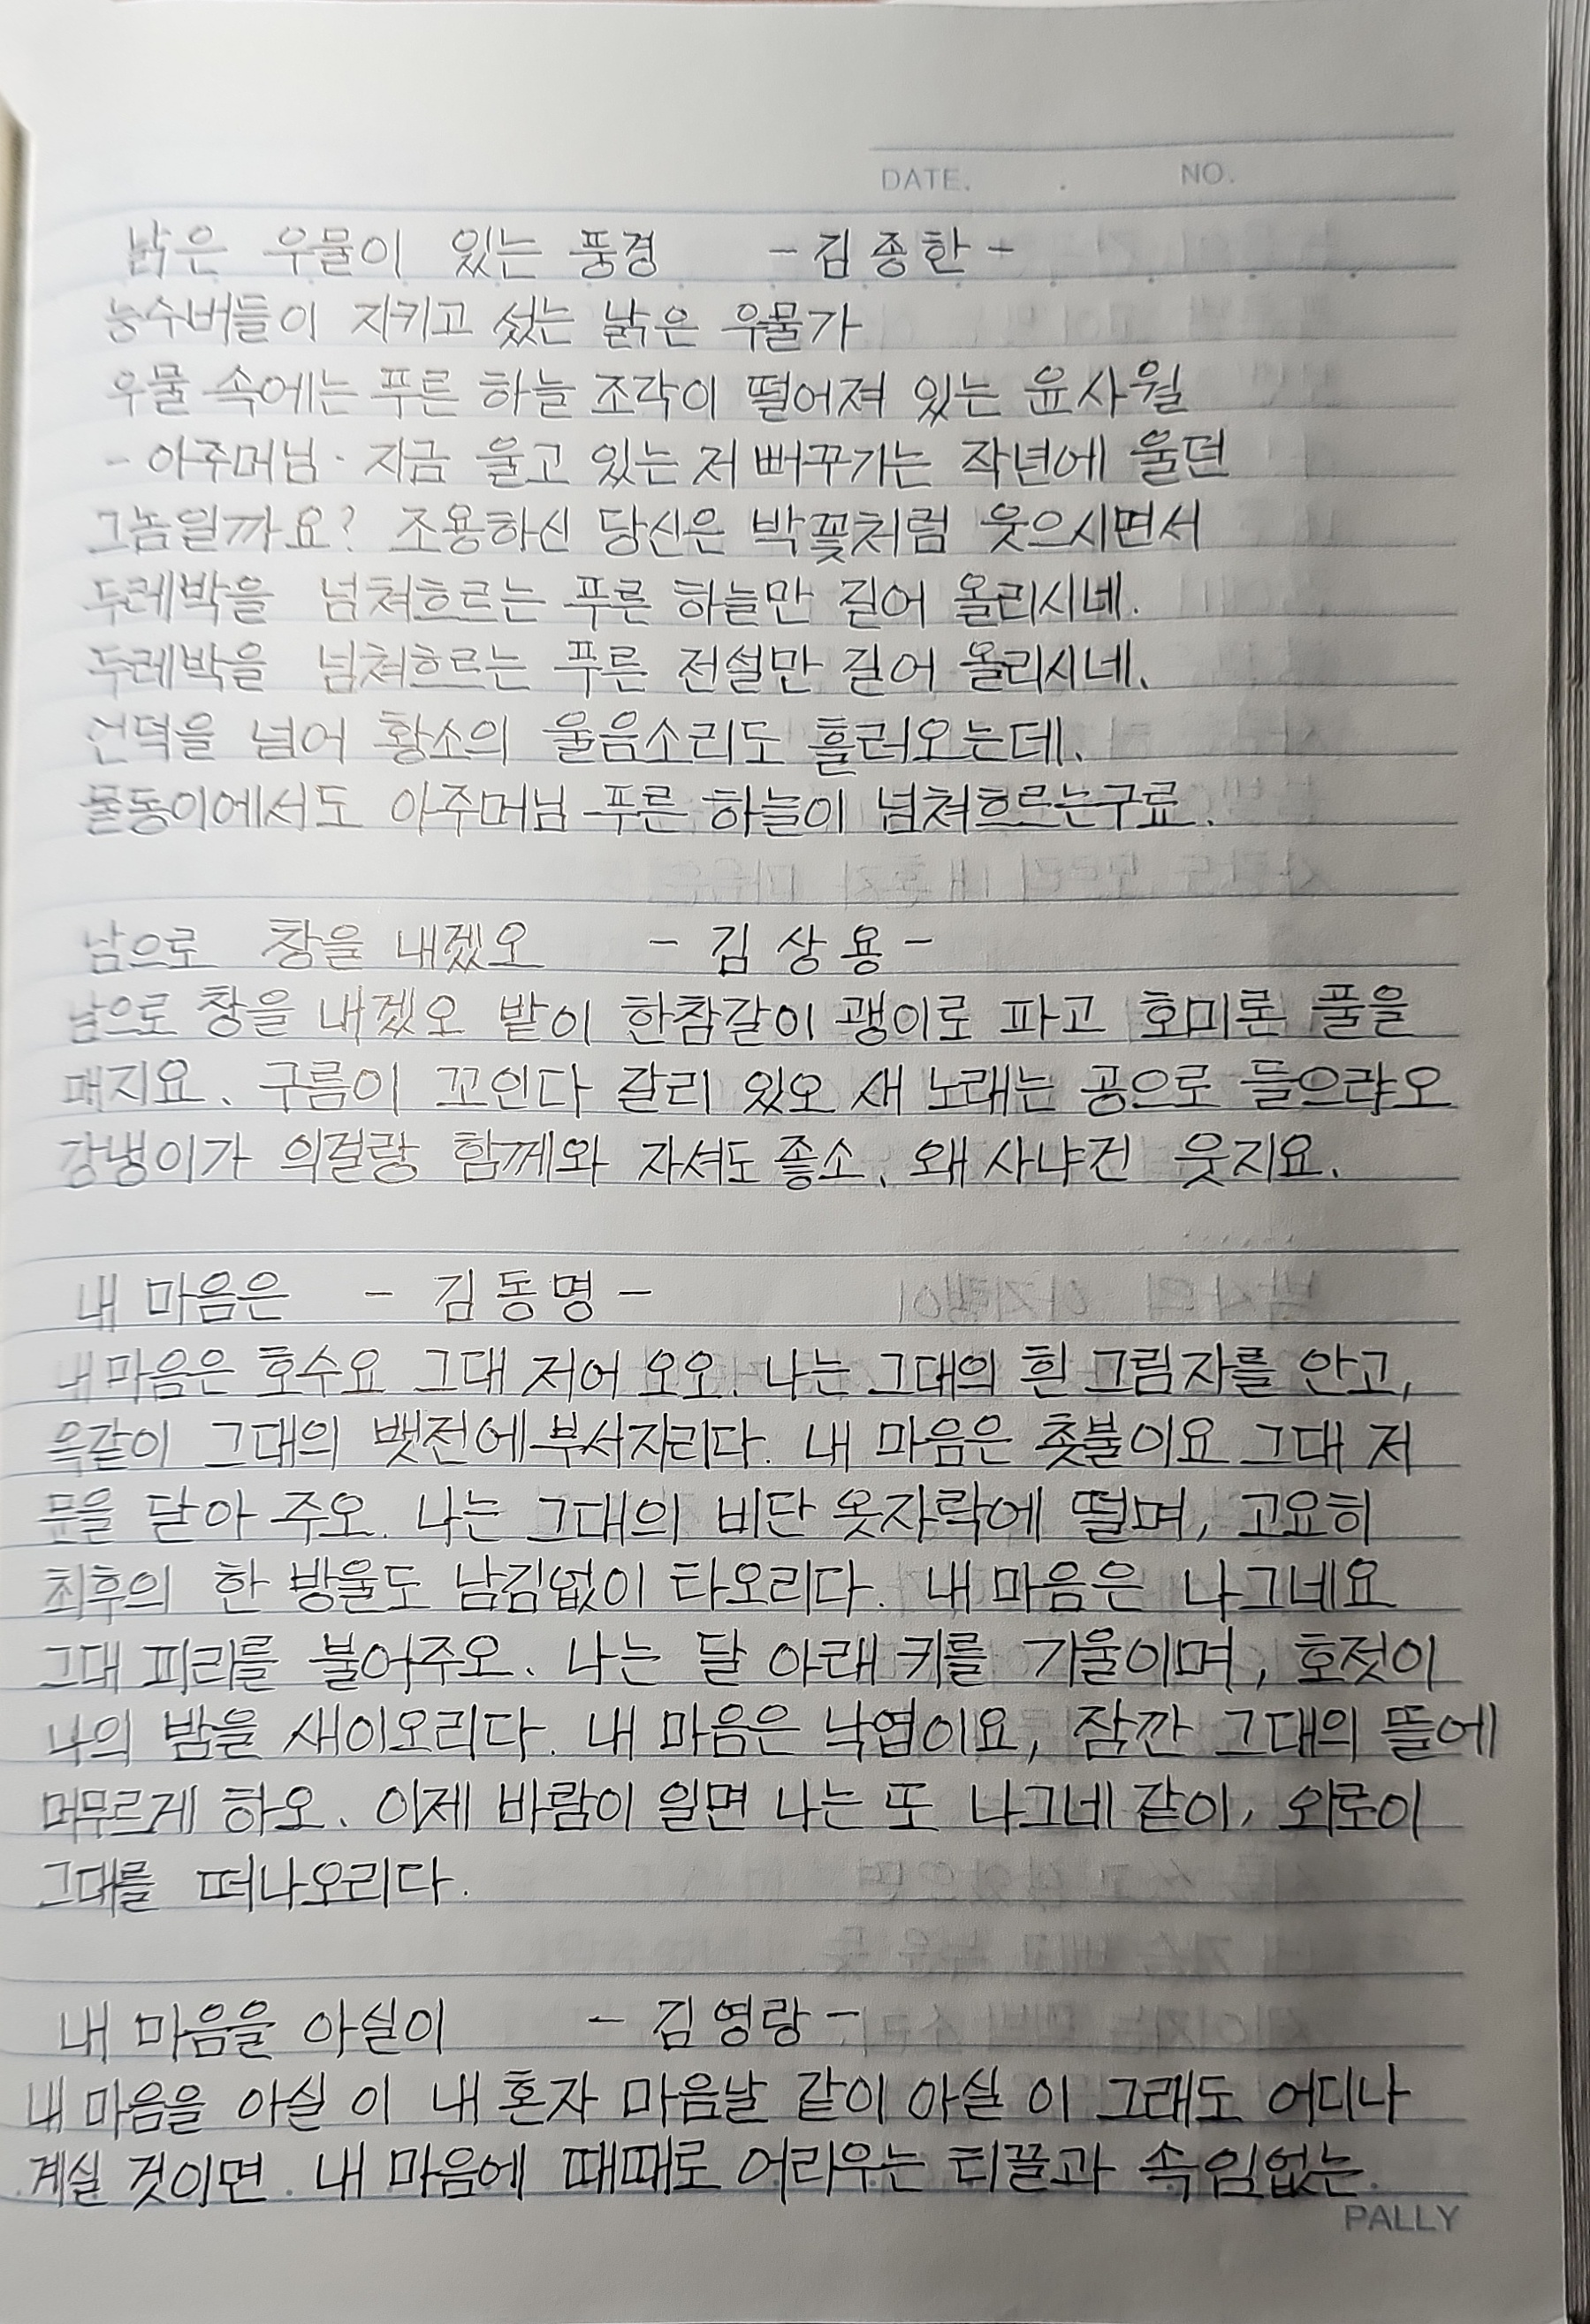 DATE. . NO.
낡은 우물이 있는 풍경 - 김종한 -
능수버들이 지키고 섰는 낡은 우물가
우물 속에는 푸른 하늘 조각이 떨어져 있는 윤사월
- 아주머님. 지금 울고 있는 저 뻐꾸기는 작년에 울던
그놈일까요? 조용하신 당신은 박꽃처럼 웃으시면서
두레박을 넘쳐흐르는 푸른 하늘만 길어 올리시네.
두레박을 넘쳐흐르는 푸른 전설만 길어 올리시네.
언덕을 넘어 황소의 울음소리도 흘러오는데.
물동이에서도 아주머님 푸른 하늘이 넘쳐흐르는구료.
남으로 창을 내겠오 - 김상용 -
남으로 창을 내겠오 밭이 한참갈이 괭이로 파고 호미론 풀을
매지요. 구름이 꼬인다 갈리 있오 새 노래는 공으로 들으랴오
강냉이가 익걸랑 함께와 자셔도 좋소. 왜 사냐건 웃지요.
내 마음은 - 김동명 -
내 마음은 호수요 그대 저어 오오. 나는 그대의 흰 그림자를 안고,
옥같이 그대의 뱃전에 부서지리다. 내 마음은 촛불이요 그대 저
문을 닫아 주오. 나는 그대의 비단 옷자락에 떨며, 고요히
최후의 한 방울도 남김없이 타오리다. 내 마음은 나그네요
그대 피리를 불어주오. 나는 달 아래 귀를 기울이며, 호젓이
나의 밤을 새이오리다. 내 마음은 낙엽이요, 잠깐 그대의 뜰에
머무르게 하오. 이제 바람이 일면 나는 또 나그네 같이, 외로이
그대를 떠나오리다.
내 마음을 아실이 - 김영랑 -
내 마음을 아실 이 내 혼자 마음날 같이 아실 이 그래도 어디나
계실 것이면. 내 마음에 때때로 어리우는 티끌과 속임없는
PALLY